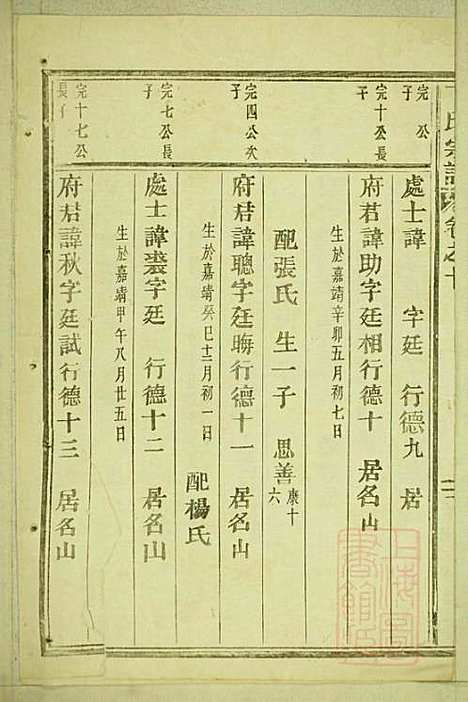 氏宗譜
卷之十
完 公
子
處士諱 字廷 行德九 居
完十公長
子
府君諱助字廷相行德十 居名山
生於嘉靖辛卯五月初七日
配張氏 生一子 思善 康十六
完四公次
子
府君諱聰字廷晦行德十一 居名山
生於嘉靖癸巳十二月初一日
配楊氏
完七公長
子
處士諱裘字廷 行德十二 居名山
生於嘉靖甲午八月廿五日
完十七公
長子
府君諱秋字廷試行德十三 居名山
上海圖書館藏